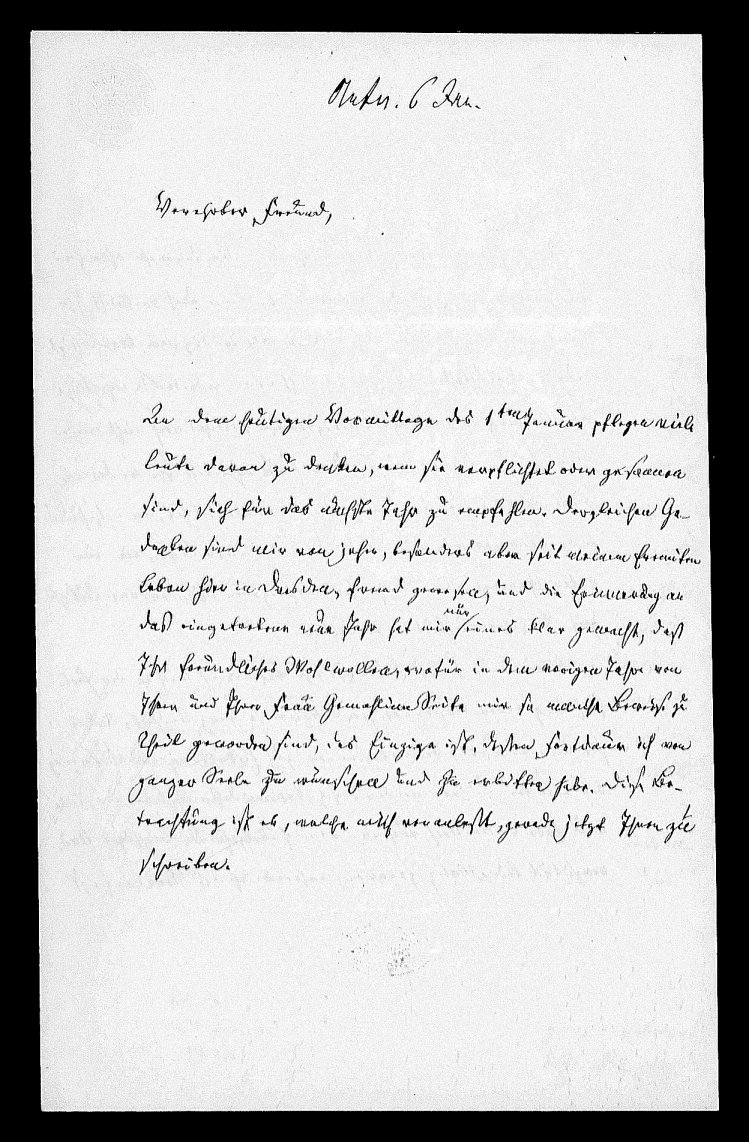 Antw. 6 Jan.
Verehrter Freund,
An dem heutigen Vormittage des 1ten Januar pflegen viele
Leute daran zu denken, wem sie verpflichtet oder gesonnen
sind, sich für das nächste Jahr zu empfehlen. Dergleichen Ge-
danken sind mir von jeher, besonders aber seit meinem Eremiten
leben hier in Dresden, fremd gewesen, und die Erinnerung an
das eingetretene neue Jahr hat mir nur Eines klar gemacht, daß
Ihr freundliches Wohlwollen, wofür in dem vorigen Jahre von
Ihrer und Ihrer Frau Gemahlinn Seite mir so manche Beweise zu
Theil geworden sind, das Einzige ist, dessen Fortdauer ich von
ganzer Seele zu wünschen und zu erbitten habe. Diese Be-
trachtung ist es, welche mich veranlaßt, gerade jetzt Ihnen zu
schreiben.